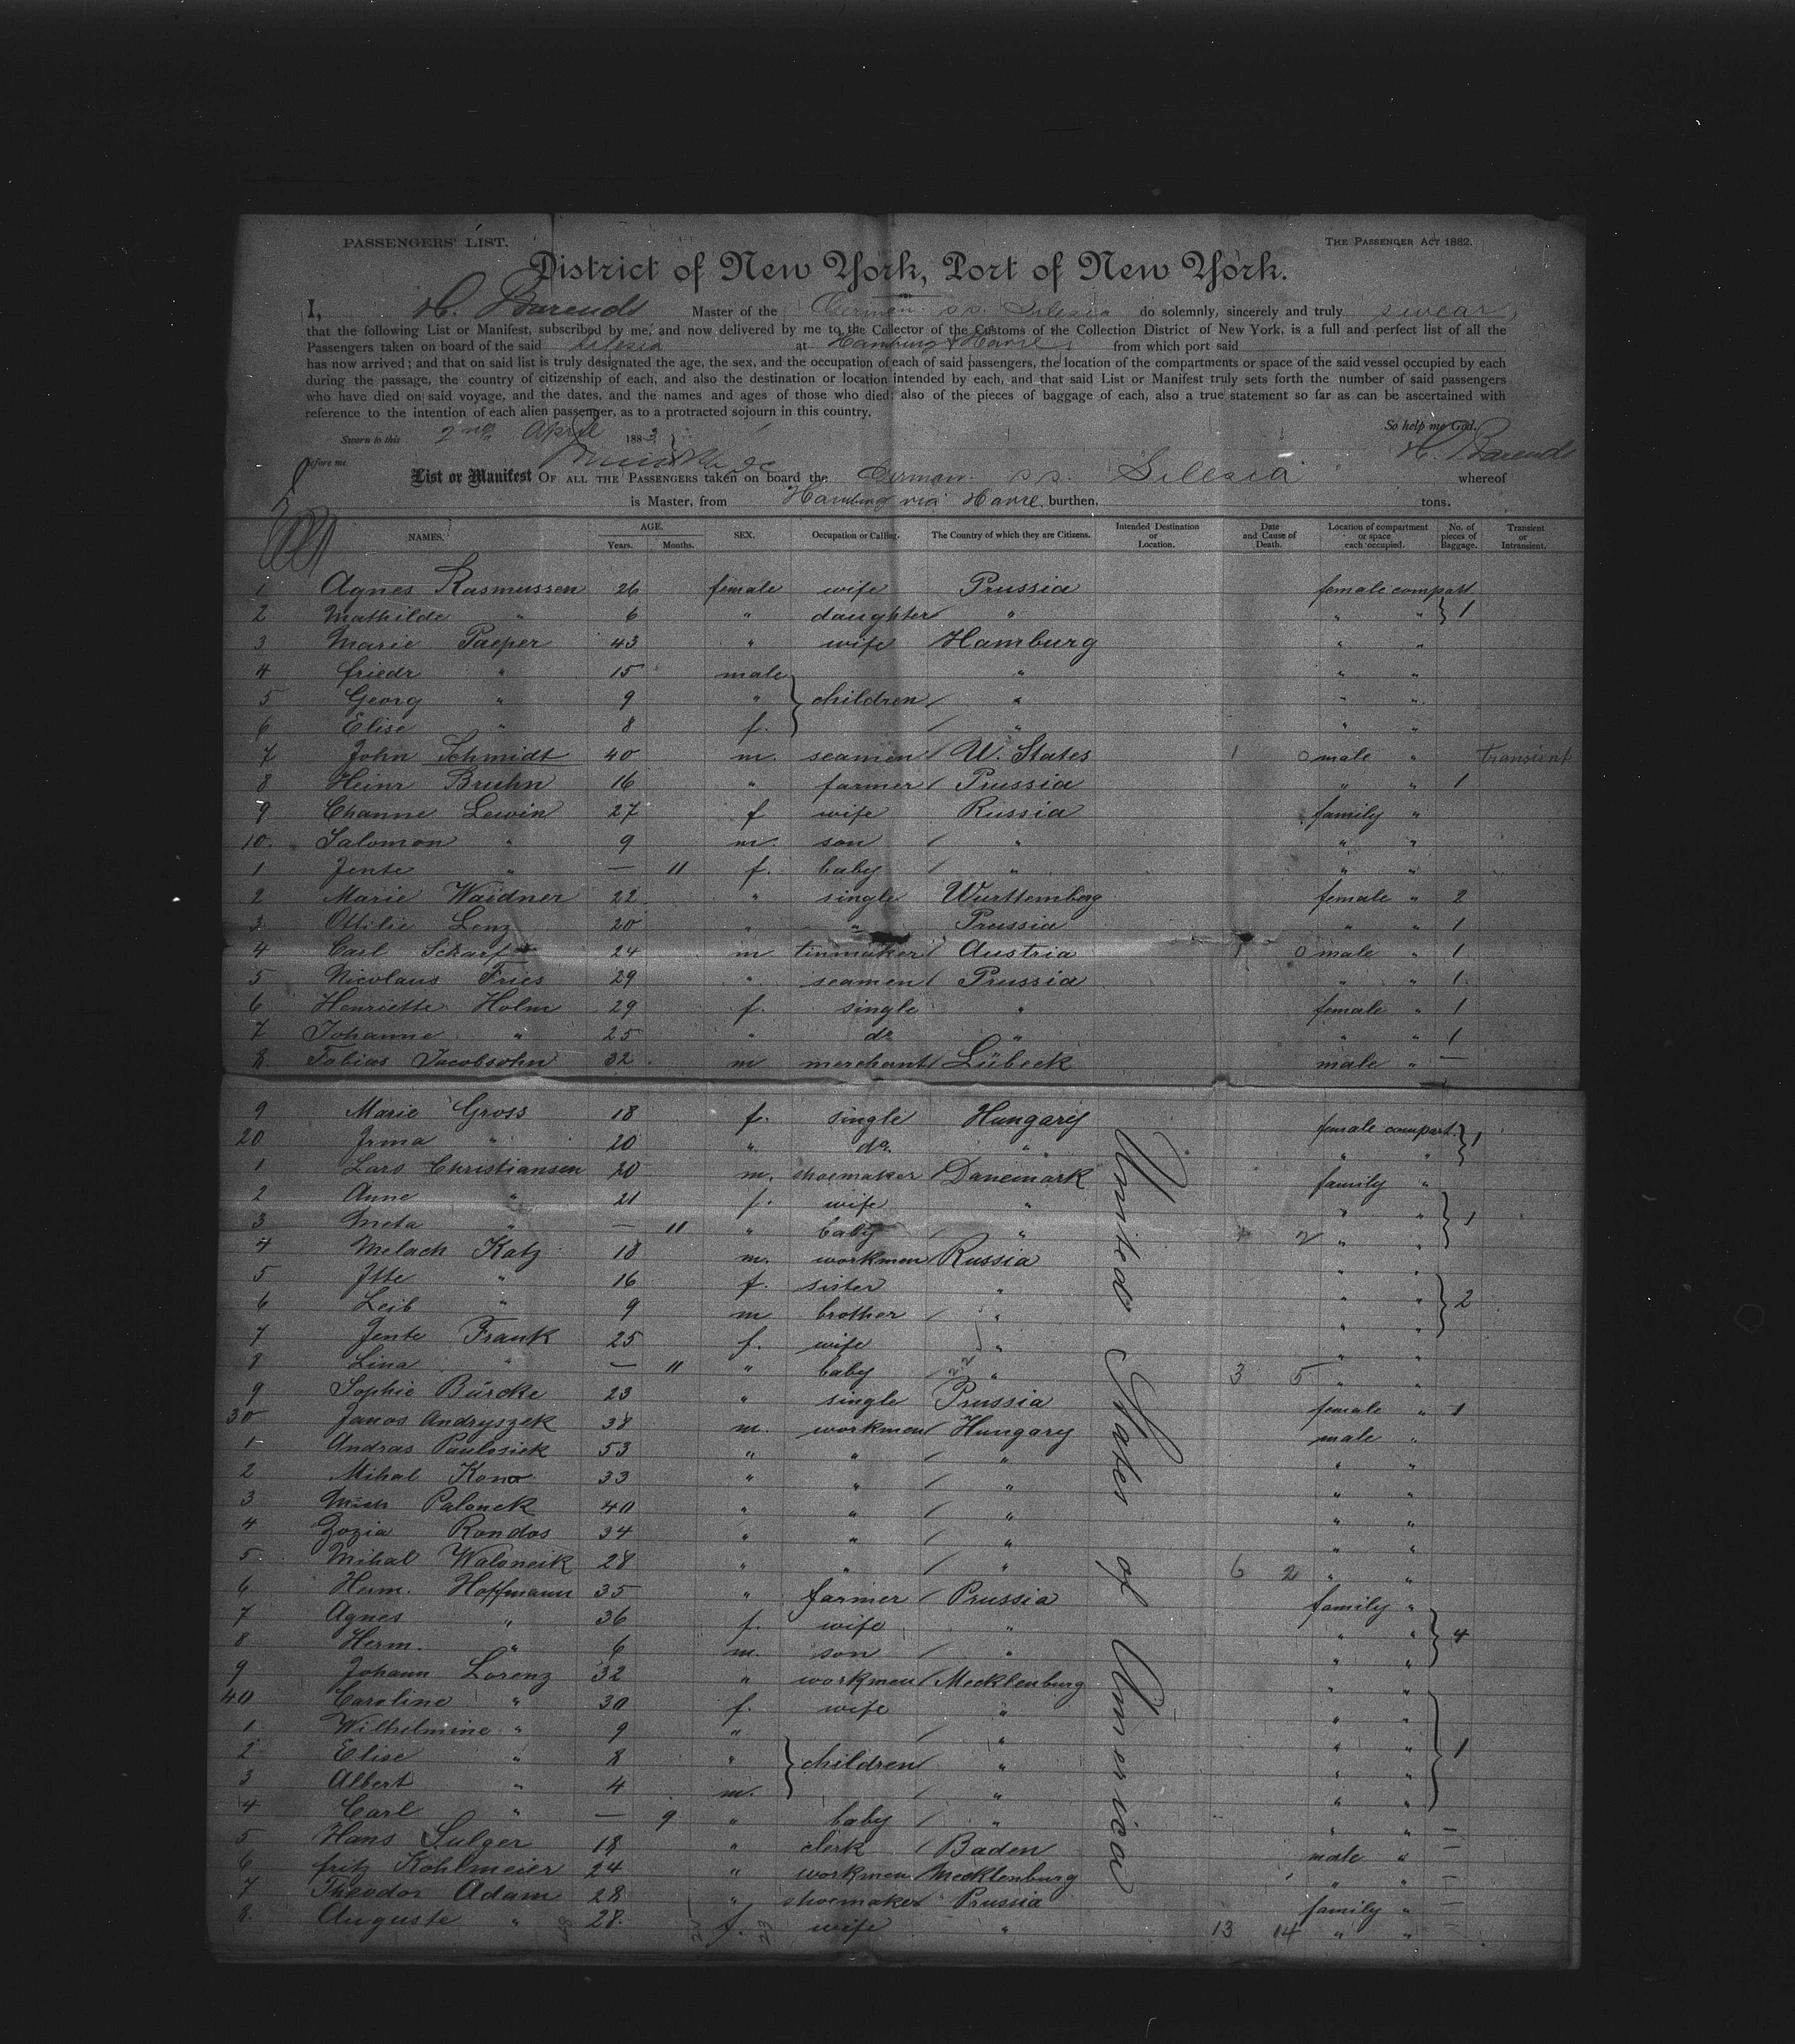 PASSENGERS' LIST.
THE PASSENGER ACT 1882.
District of New York, Port of New York.
I, H. Barends Master of the German s.s. Silesia do solemnly, sincerely and truly swear,
that the following List or Manifest, subscribed by me, and now delivered by me to the Collector of the Customs of the Collection District of New York, is a full and perfect list of all the
Passengers taken on board of the said Silesia at Hamburg & Havre, from which port said
has now arrived; and that on said list is truly designated the age, the sex, and the occupation of each of said passengers, the location of the compartments or space of the said vessel occupied by each
during the passage, the country of citizenship of each, and also the destination or location intended by each, and that said List or Manifest truly sets forth the number of said passengers
who have died on said voyage, and the dates, and the names and ages of those who died; also of the pieces of baggage of each, also a true statement so far as can be ascertained with
reference to the intention of each alien passenger, as to a protracted sojourn in this country.
So help me God.
Sworn to this 2nd April 1883
H. Barends
before me
List or Manifest OF ALL THE PASSENGERS taken on board the German s.s. Silesia whereof
is Master, from Hamburg via Havre, burthen. tons.
NAMES. AGE. Years. Months. SEX. Occupation or Calling. The Country of which they are Citizens. Intended Destination or Location. Date and Cause of Death. Location of compartment or space each occupied. No. of pieces of Baggage. Transient or Intransient.
1 Agnes Rasmussen 26 female wife Prussia female compart
2 Mathilde " 6 " daughter " " " } 1
3 Marie Paeper 43 " wife Hamburg " "
4 Friedr " 15 male " " "
5 Georg " 9 " } children / " " "
6 Elise " 8 f. / " " "
7 John Schmidt 40 m. seamen / U. States 1 0 male " Transient
8 Heinr Bruhn 16 " farmer / Prussia " " 1
9 Channe Lewin 27 f wife Russia family "
10. Salomon " 9 m. son / " " "
1 Jente " — 11 f. baby / " " "
2 Marie Waidner 22 " single Wurttemberg female " 2
3 Ottilie Lenz 20 " " Prussia " " 1
4 Carl Scharf 24 m tinmaker / Austria 1 0 male " 1
5 Nicolaus Fries 29 " seamen / Prussia " " 1.
6 Henriette Holm 29 f. single " female " 1
7 Johanne " 25 " do " " " 1
8. Tobias Jacobsohn 32 m merchant / Lübeck male " —
9 Marie Gross 18 f. single Hungary female compart.
20 Irma " 20 " do. " " " } 1
1 Lars Christiansen 20 m. shoemaker / Danemark family "
2 Anne " 21 f. wife " " "
3 Meta " — 11 " baby / " 2 " " } 1
4 Melach Katz 18 m. workmen Russia " "
5 Itte " 16 f. sister " " "
6 Leib " 9 m brother / " " " } 2
7 Jente Frank 25 f. wife " " "
8 Lina " — 11 " baby " 3 5 " "
9 Sophie Bürcke 23 " single Prussia female " 1
30 Janos Andryszek 38 m. workmen / Hungary male "
1 Andras Paulosick 53 " " / " " "
2 Mihal Kona 33 " " / " " "
3 Palonek 40 " " / " " "
4 Zozia Rondos 34 " " / " " "
5 Mihal Waloneik 28 " " / " 6 2 " "
6 Herm. Hoffmann 35 " farmer / Prussia family "
7 Agnes " 36 f. wife " " " } 4
8 Herm. " 6 m. son / " " "
9 Johann Lorenz 32 " workmen / Mecklenburg " "
40 Caroline " 30 f. wife " " "
1 Wilhelmine " 9 " / " " "
2 Elise " 8 " } children / " " " } 1
3 Albert " 4 m. / " " "
4 Carl " — 9 " baby / " " " —
5 Hans Sulger 18 " clerk / Baden male " —
6 Fritz Kohlmeier 24 " workmen Mecklenburg " " —
7 Theodor Adam 28 " shoemaker Prussia family " —
8. Auguste " 28. f. wife " 13 14 " " —
United States of America